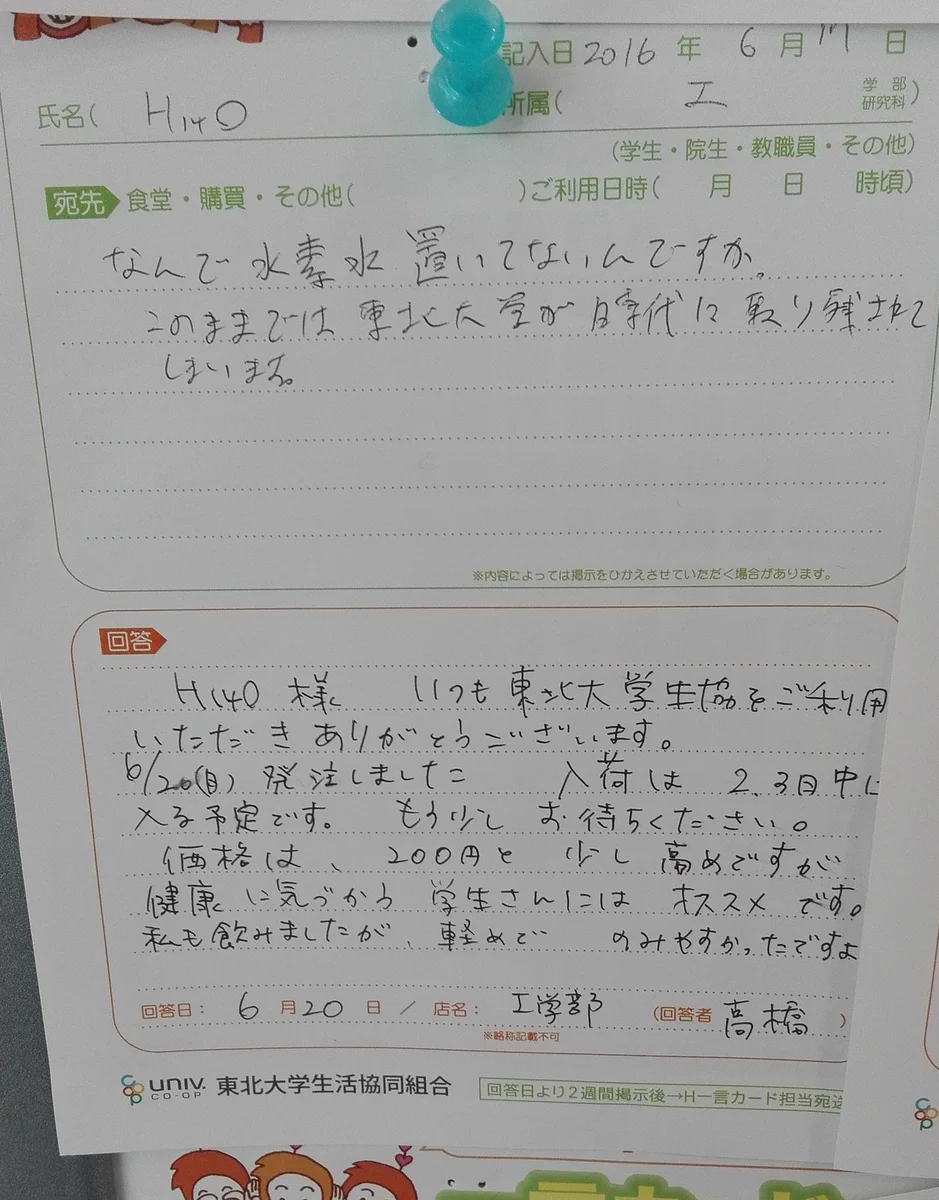 記入日 2016 年 6 月 17 日
氏名( H140 所属( 工 学部 研究科)
(学生・院生・教職員・その他)
宛先 食堂・購買・その他( )ご利用日時( 月 日 時頃)
なんで水素水置いてないんですか。
このままでは東北大学が時代に取り残されて
しまいます。
※内容によっては掲示をひかえさせていただく場合があります。
回答
H140 様 いつも東北大学生協をご利用
いただきありがとうございます。
6/20(月) 発注しました 入荷は 2、3日中に
入る予定です。 もう少し お待ちください。
価格は、200円と 少し 高めですが
健康に気づかう 学生さんには オススメ です。
私も飲みましたが、軽めで のみやすかったですよ
回答日: 6 月 20 日 / 店名: 工学部 (回答者 高橋 )
※略称記載不可
univ. CO-OP 東北大学生活協同組合
回答日より2週間掲示後→H一言カード担当宛送